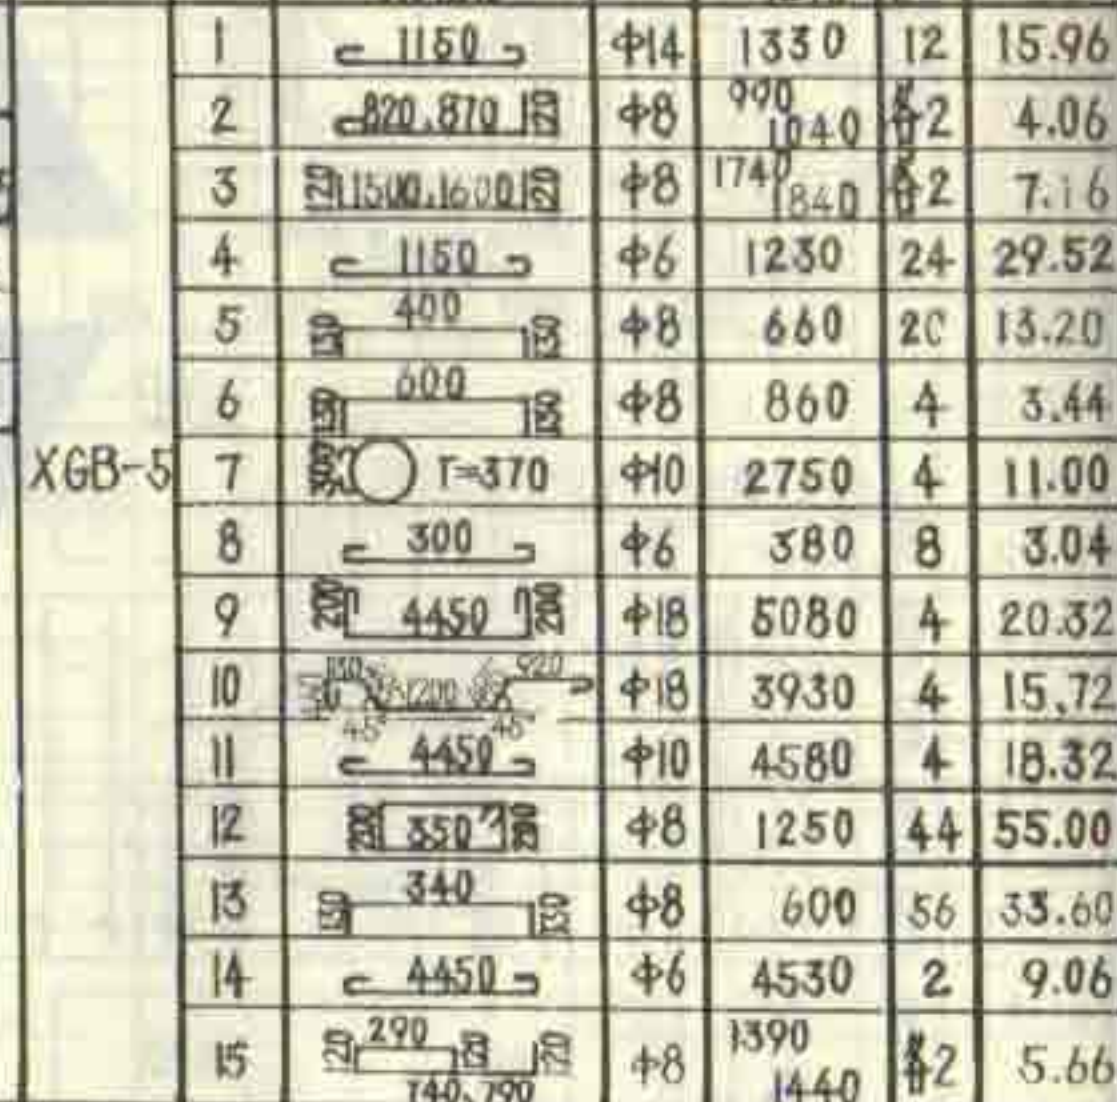 1 1150 Φ14 1330 12 15.96
2 820.870 120 Φ8 990 1040 各2 4.06
3 120 1500.1600 120 Φ8 1740 1840 各2 7.16
4 1150 Φ6 1230 24 29.52
5 130 400 130 Φ8 660 20 13.20
6 130 600 130 Φ8 860 4 3.44
XGB-5 7 r=370 Φ10 2750 4 11.00
8 300 Φ6 380 8 3.04
9 200 4450 200 Φ18 5080 4 20.32
10 1200 920 45° 45° Φ18 3930 4 15.72
11 4450 Φ10 4580 4 18.32
12 350 Φ8 1250 44 55.00
13 130 340 130 Φ8 600 56 33.60
14 4450 Φ6 4530 2 9.06
15 120 290 120 120 740.790 Φ8 1390 1440 各2 5.66